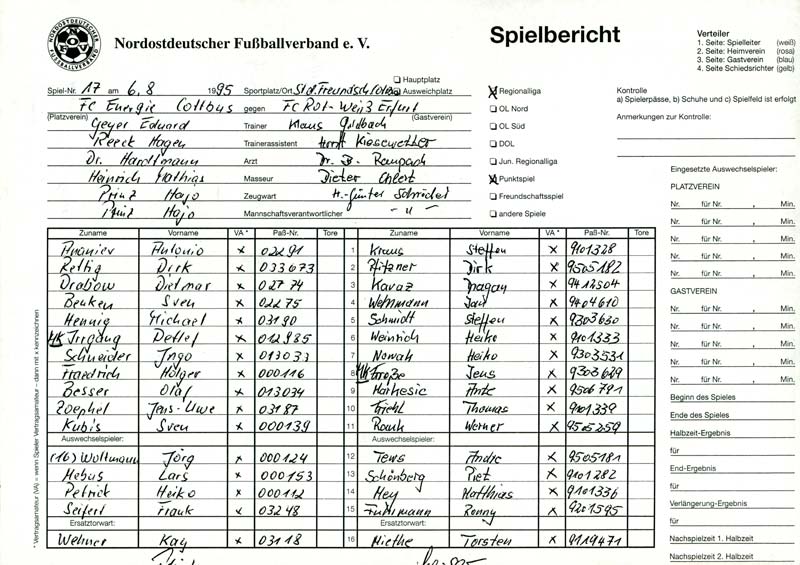 NORDOSTDEUTSCHER FUSSBALLVERBAND
NOFV
Nordostdeutscher Fußballverband e. V.
Spielbericht
Verteiler
1. Seite: Spielleiter (weiß)
2. Seite: Heimverein (rosa)
3. Seite: Gastverein (blau)
4. Seite Schiedsrichter (gelb)
Spiel-Nr. 17 am 6. 8 1995 Sportplatz/Ort
Hauptplatz
Ausweichplatz
FC Energie Cottbus gegen FC Rot-Weiß Erfurt
(Platzverein) Geyer Eduard Trainer Klaus Goldbach (Gastverein)
Reeck Hagen Trainerassistent Horst Kiesewetter
Dr. Hardtmann Arzt Dr. B.
Heinrich Mathias Masseur Dieter Ehlert
Prinz Hajo Zeugwart H.-Günter Schröder
Prinz Hajo Mannschaftsverantwortlicher - " -
Regionalliga
OL Nord
OL Süd
DOL
Jun. Regionalliga
Punktspiel
Freundschaftsspiel
andere Spiele
Kontrolle
a) Spielerpässe, b) Schuhe und c) Spielfeld ist erfolgt
Anmerkungen zur Kontrolle:
Zuname Vorname VA * Paß-Nr. Tore Zuname Vorname VA * Paß-Nr. Tore
Ananiev Antonio x 02291 1 Kraus Steffen x 9101328
Rettig Dirk x 033673 2 Pfitzner Dirk x 9505182
Drabow Dietmar x 02774 3 Kavaz Dragan x 9412504
Benken Sven x 02275 4 Wehrmann Jan x 9404610
Hennig Michael x 03190 5 Schmidt Steffen x 9303630
MK Irrgang Detlef x 012985 6 Weinrich Heiko x 9101333
Schneider Ingo x 013033 7 Nowak Heiko x 9303531
Friedrich Holger x 000116 8 MK Große Jens x 9303629
Besser Olaf x 013034 9 Ante x 9506791
Zoephel Jens-Uwe x 03187 10 Thomas x 9101339
Kubis Sven x 000139 11 Werner x 9505259
Auswechselspieler: Auswechselspieler:
(16) Woltmann Jörg x 000124 12 Tews Andre x 9505181
Hebus Lars x 000153 13 Schönberg Piet x 9101282
Petrick Heiko x 000112 14 Hey Matthias x 9101336
Seifert Frank x 03248 15 Fuhrmann Ronny x 9201595
Ersatztorwart: Ersatztorwart:
Wehner Kay x 03118 16 Miethe Torsten x 9119471
* Vertragsamateur (VA) = wenn Spieler Vertragsamateur – dann mit x kennzeichnen
Eingesetzte Auswechselspieler:
PLATZVEREIN
Nr. für Nr. , Min.
Nr. für Nr. , Min.
Nr. für Nr. , Min.
Nr. für Nr. , Min.
GASTVEREIN
Nr. für Nr. , Min.
Nr. für Nr. , Min.
Nr. für Nr. , Min.
Nr. für Nr. , Min.
Beginn des Spieles
Ende des Spieles
Halbzeit-Ergebnis
für
End-Ergebnis
für
Verlängerung-Ergebnis
für
Nachspielzeit 1. Halbzeit
Nachspielzeit 2. Halbzeit